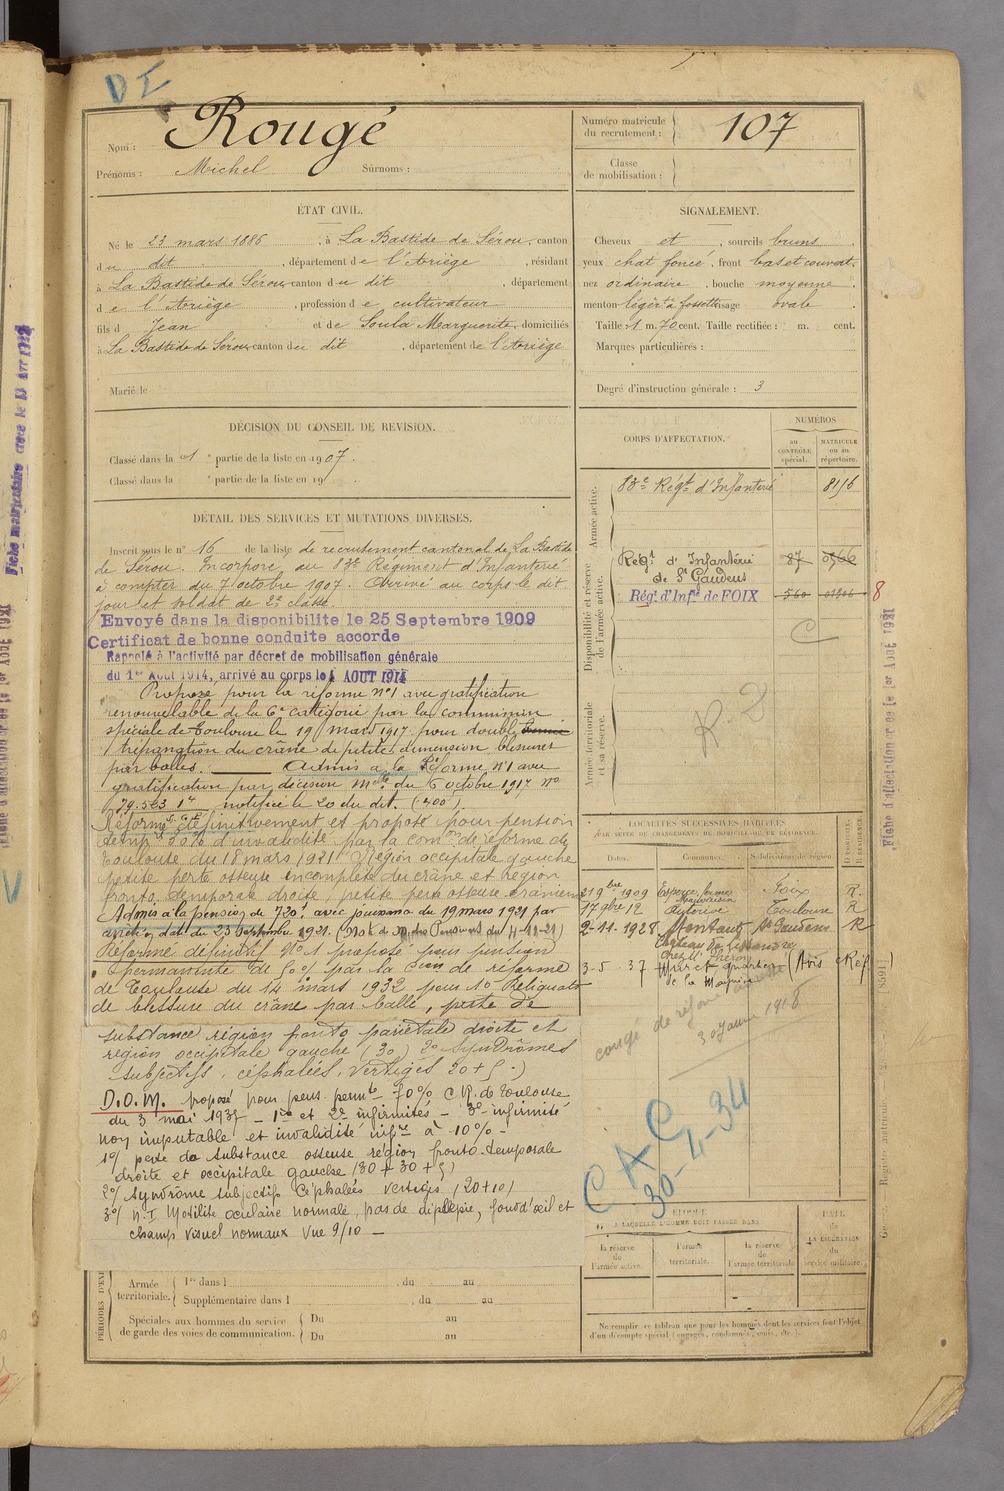 DE
Nom : Rougé
Prénoms : Michel Surnoms :
Numéro matricule du recrutement : 107
Classe de mobilisation :
ÉTAT CIVIL.
Né le 23 mars 1886, à La Bastide de Sérou, canton
du dit, département de l'Ariège, résidant
à La Bastide de Sérou canton du dit, département
de l'Ariège, profession de cultivateur
fils d Jean et de Soula Marguerite, domiciliés
à La Bastide de Sérou canton du dit, département de l'Ariège
Marié le
SIGNALEMENT.
Cheveux et, sourcils bruns,
yeux chat foncé, front bas et couvert,
nez ordinaire, bouche moyenne,
menton léger à fossette visage ovale
Taille : 1 m. 70 cent. Taille rectifiée : m. cent.
Marques particulières :
Degré d'instruction générale : 3
DÉCISION DU CONSEIL DE REVISION.
Classé dans la 1 e partie de la liste en 1907.
Classé dans la e partie de la liste en 19 .
DÉTAIL DES SERVICES ET MUTATIONS DIVERSES.
Inscrit sous le n° 16 de la liste de recrutement cantonal de La Bastide
de Sérou. Incorporé au 83e Régiment d'Infanterie
à compter du 7 octobre 1907. Arrivé au corps le dit
jour et soldat de 2e classe.
Envoyé dans la disponibilite le 25 Septembre 1909
Certificat de bonne conduite accorde
Rappelé à l'activité par décret de mobilisation générale
du 1er Août 1914, arrivé au corps le 4 AOUT 1914
Proposé pour la réforme n°1 avec gratification
renouvelable de la 6e catégorie par la commission
spéciale de Toulouse le 19 mars 1917 pour double
trépanation du crâne de petite dimension blessures
par balles. Admis à la Réforme n°1 avec
gratification par décision Mlle du 6 octobre 1917 n°
79.563 1er notifiée le 20 du dit. (400f).
Réformé définitivement et proposé pour pension
temp. 50% d'invalidité par la comon de réforme de
Toulouse du 18 mars 1921 Région occipitale gauche
petite perte osseuse incomplète du crâne et région
fronto temporale droite, petite perte osseuse cranienne
Admis à la pension de 720f. avec jouissance du 19 mars 1921 par
arrêté en date du 23 Septembre 1921.
Réformé définitif N°1 proposé pour pension
permanente de 50% par la Con de réforme
de Toulouse du 14 mars 1932 pour 1° Reliquats
de blessure du crâne par balle, perte de
substance région fronto pariétale droite et
région occipitale gauche (30) 2° Syndrômes
subjectifs, céphalées, vertiges 20+5.)
D.O.M. proposé pour pens. permte 70% C.R. de Toulouse
du 3 mai 1935 - 1re et 2e infirmités - 3e infirmité
non imputable et invalidité infre à 10% -
1°/ perte de substance osseuse région fronto-temporale
droite et occipitale gauche (30 + 30 + 5)
2°/ Syndrôme subjectif Céphalées vertiges (20+10)
3°/ N.I Motilité oculaire normale, pas de diplopie, fond d'œil et
champ visuel normaux Vue 9/10 -
CORPS D'AFFECTATION.
NUMÉROS
au CONTRÔLE spécial.
MATRICULE ou au répertoire.
Armée active.
83e Régt d'Infanterie 8116
Disponibilité et réserve de l'armée active.
Régt d'Infanterie de St Gaudens 87
Régt d'Infie de FOIX 8
Armée territoriale et sa réserve.
R. 2
LOCALITÉS SUCCESSIVES HABITÉES
PAR SUITE DE CHANGEMENTS DE DOMICILE OU DE RÉSIDENCE.
Dates. Communes. Subdivisions de région. D. DOMICILE. R. RÉSIDENCE.
21 9bre 1909 Foix R.
17 9bre 12 Auterive Toulouse R
2-11-1928 Montaut St Gaudens R
3-5-37 Muret quartier (Avis Réf.)
congé de réforme
30 Janvier 1918
C A C
30-4-34
ÉPOQUE
À LAQUELLE L'HOMME DOIT PASSER DANS
la réserve de l'armée active.
l'armée territoriale.
la réserve de l'armée territoriale
DATE de LA LIBÉRATION du service militaire.
PÉRIODES D'EXE
Armée territoriale.
1re dans l , du au
Supplémentaire dans l , du au
Spéciales aux hommes du service de garde des voies de communication.
Du au
Du au
Ne remplir ce tableau que pour les hommes dont les services font l'objet
d'un décompte spécial (engagés, condamnés, omis, etc.).